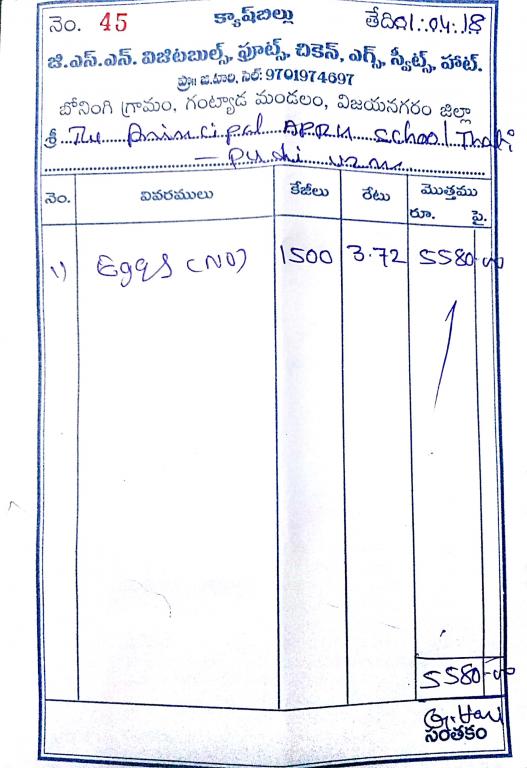 నెం. 45 క్యాష్‌బిల్లు తేది 01.04.18
జి.ఎస్.ఎన్. విజిటబుల్స్, ఫ్రూట్స్, చికెన్, ఎగ్స్, స్వీట్స్, హాట్.
ప్రొః జి.హరి, సెల్: 9701974697
బోనింగి గ్రామం, గంట్యాడ మండలం, విజయనగరం జిల్లా
శ్రీ The Principal APRU School That
నెం. వివరములు కేజీలు రేటు మొత్తము
రూ. పై.
1) Eggs (NO) 1500 3.72 5580-00
5580-00
G. Hari
సంతకం